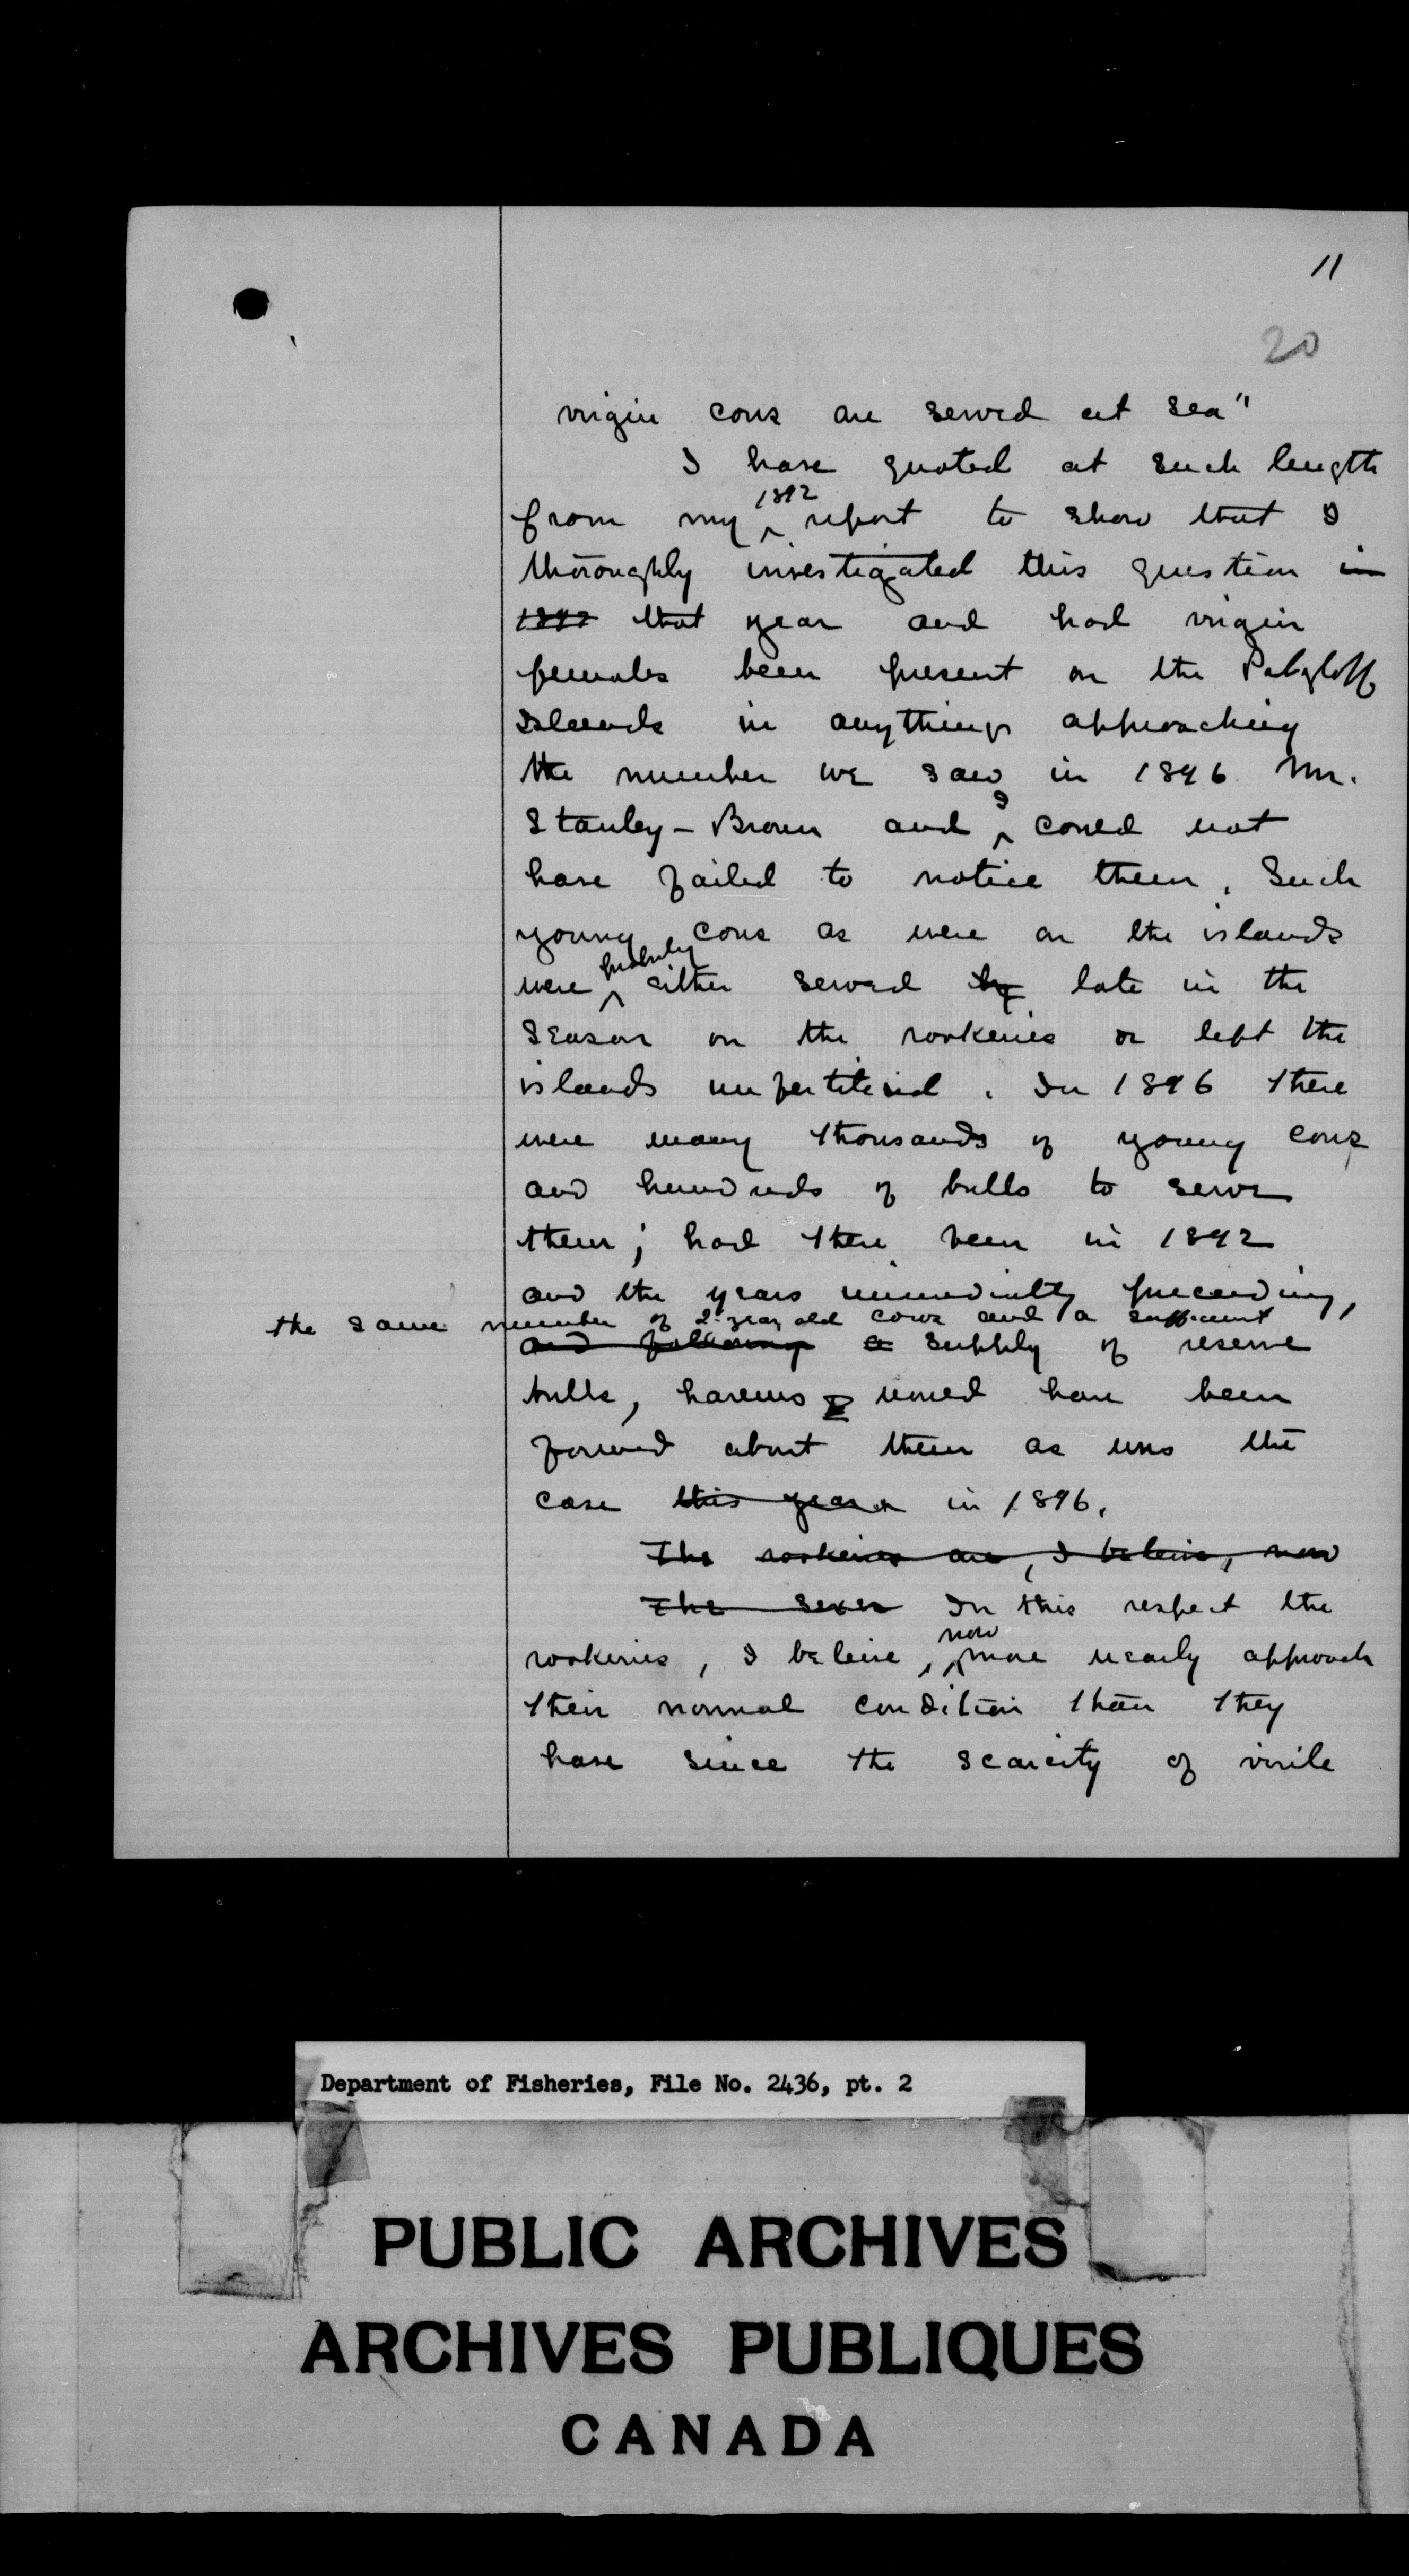 11
20
virgin cows are served at sea"
I have quoted at such length
from my 1892 report to show that I
thoroughly investigated this question in
1892 that year and had virgin
females been present on the Pribyloff
Islands in anything approaching
the number we saw in 1896 Mr.
Stanley-Brown and I could not
have failed to notice them. Such
young cows as were on the islands
were probably either served by late in the
season on the rookeries or left the
islands unfertilised. In 1896 there
were many thousands of young cows
and hundreds of bulls to serve
them; had there been in 1892
and the years immediately preceeding,
the same number of 2 year old cows and a sufficient
and following a supply of reserve
bulls, harems would have been
formed about them as was the
case this year in 1896.
The rookeries are, I beleive, now
The sexes In this respect the
rookeries, I beleive, now more nearly approach
their normal condition than they
have since the scarcity of virile
Department of Fisheries, File No. 2436, pt. 2
PUBLIC ARCHIVES
ARCHIVES PUBLIQUES
CANADA